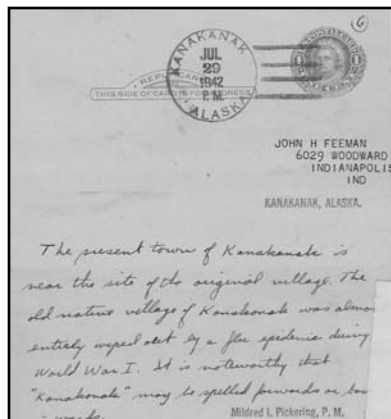 6
KANAKANAK
JUL
29
1942
P.M.
ALASKA
REPLY CARD
THIS SIDE OF CARD IS FOR ADDRESS
JOHN H FEEMAN
6029 WOODWARD
INDIANAPOLIS
IND
KANAKANAK, ALASKA.
The present town of Kanakanak is
near the site of the original village. The
old native village of Kanakanak was almos
entirely wiped out by a flu epidemic during
World War I. It is noteworthy that
"Kanakanak" may be spelled forwards or bac
wards.
Mildred I. Pickering, P. M.